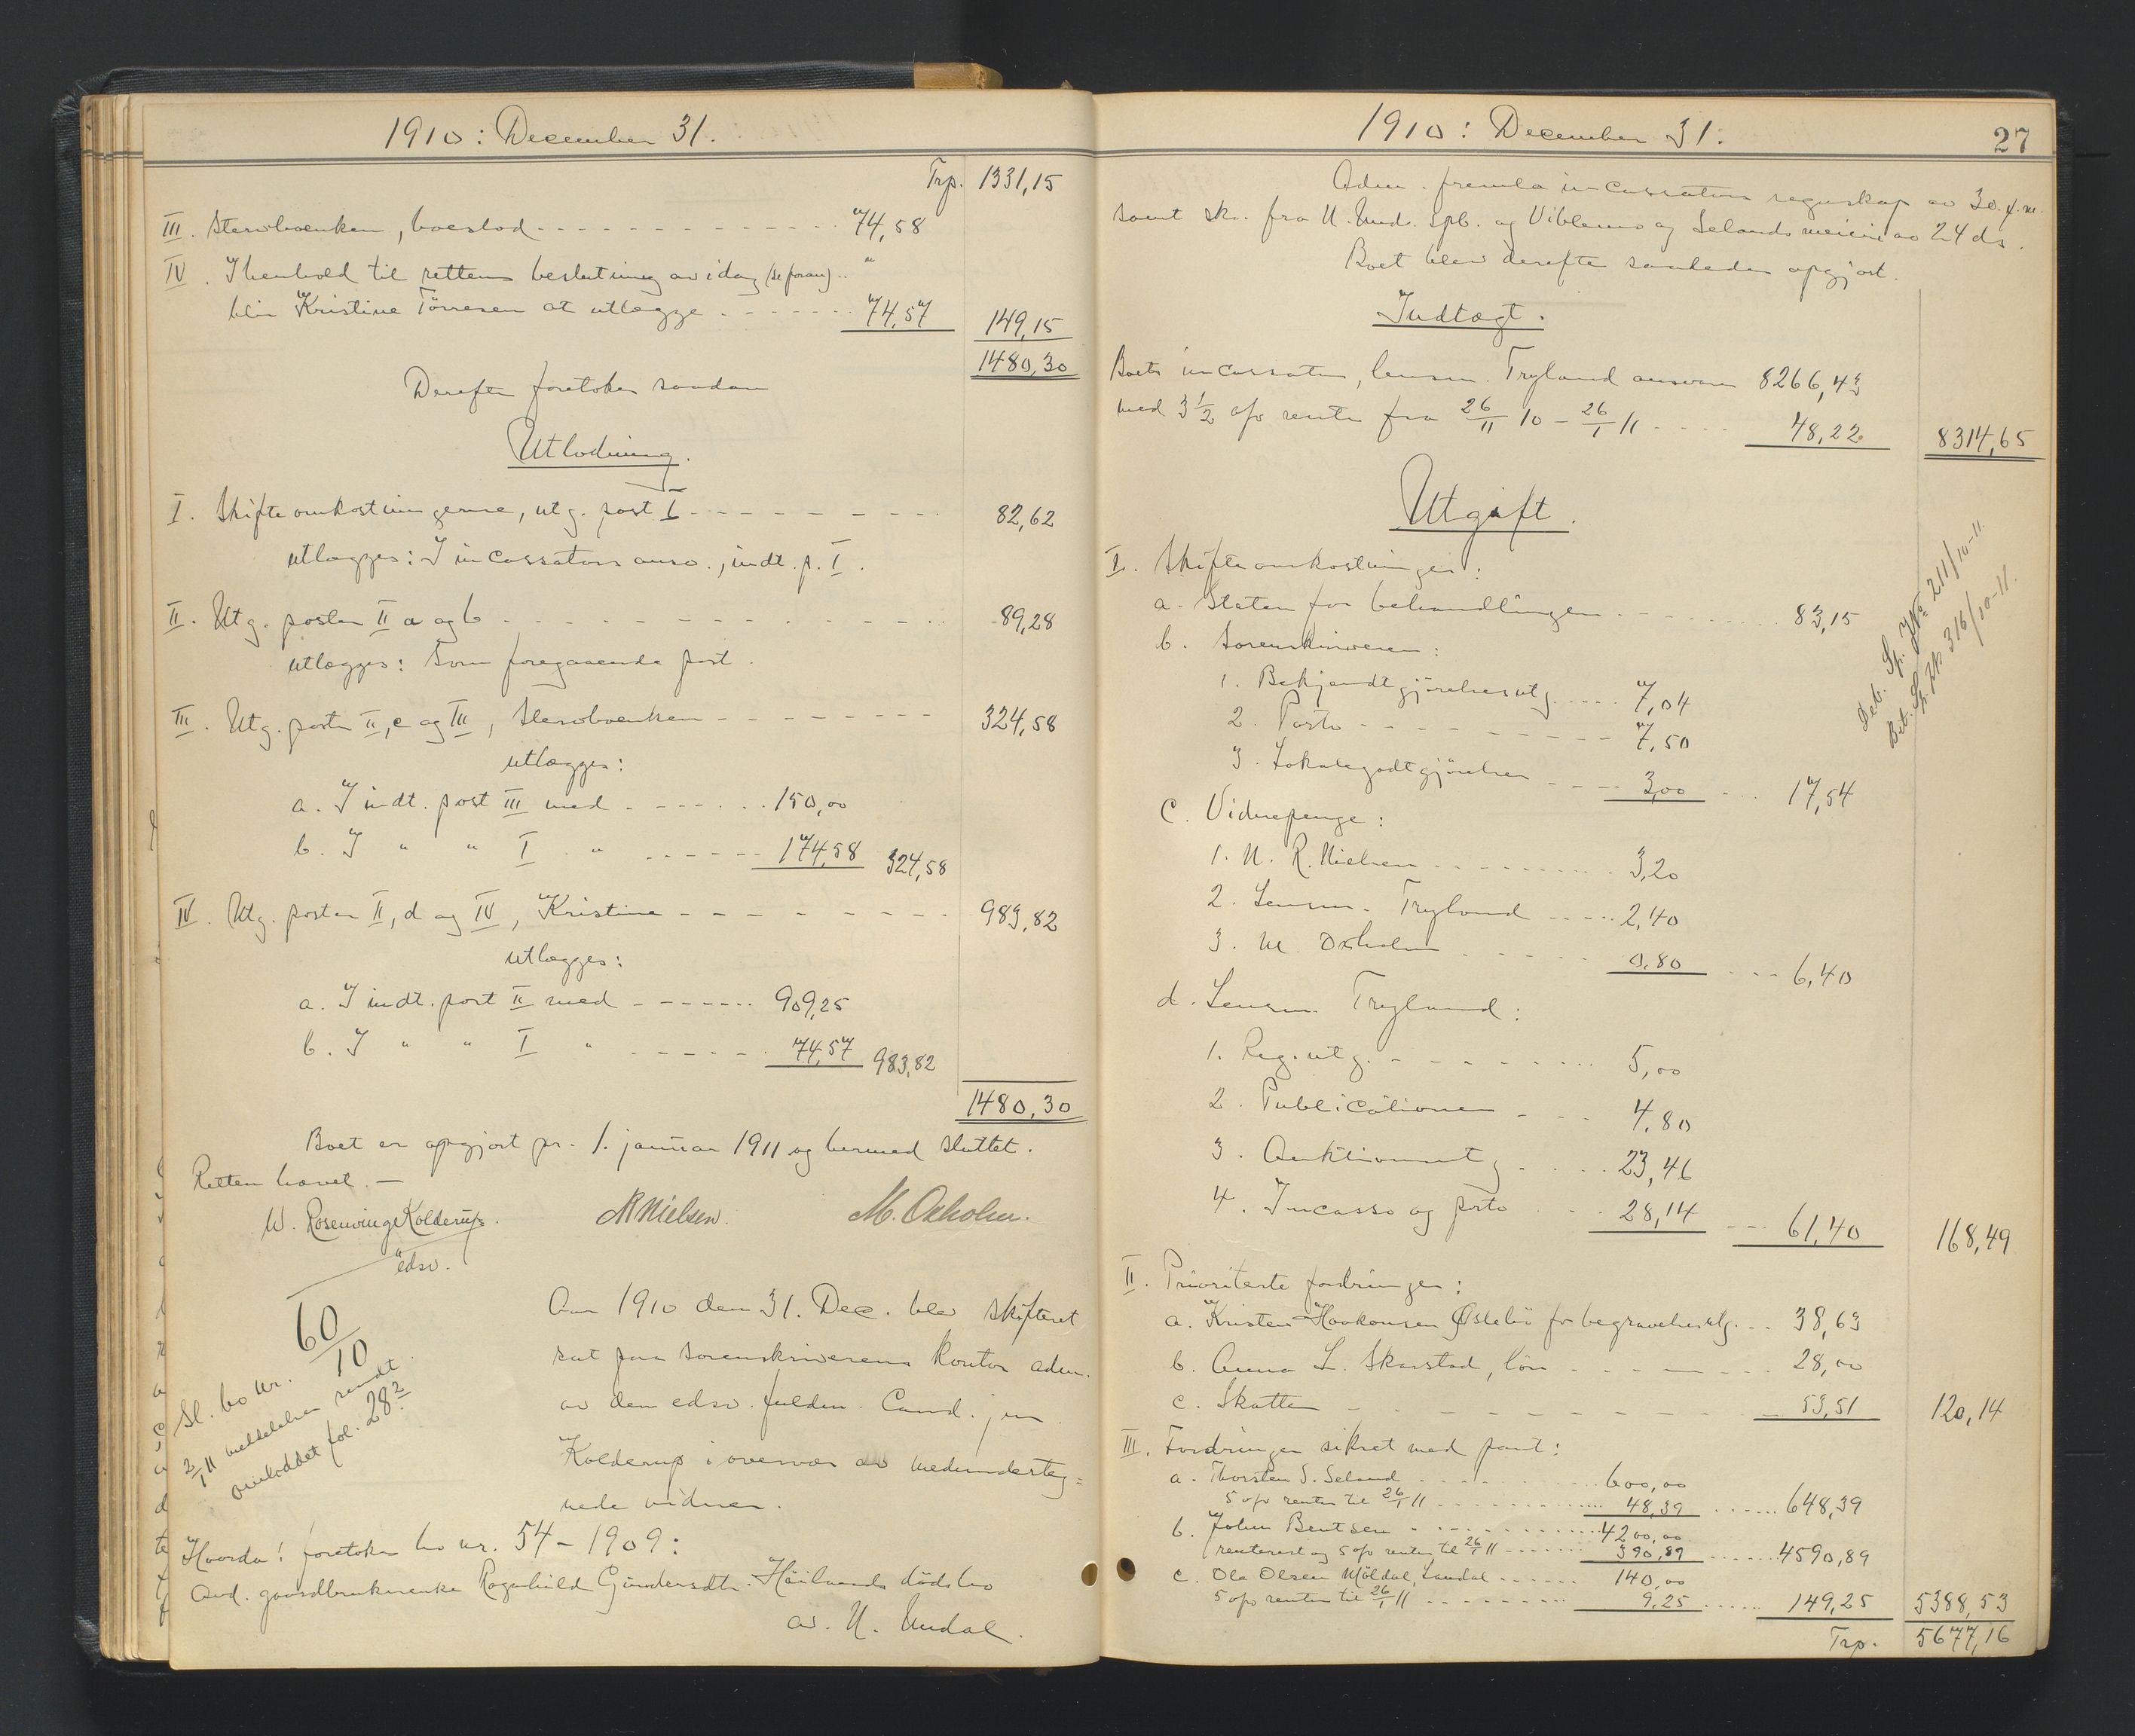 1910: December 31.
Trp. 1331,15
III. Stervboenken, boeslod - - - - - 74,58
IV. I henhold til rettens beslutning av idag (se foran) .. "
blir Kristine Tørresen at utlægge - - - - 74,57 149,15
1480,30
Derefter foretokes saadan
Utlodning.
I. Skifteomkostningerne, utg. post I - - - - - 82,62
utlægges: I incassators ansv., indt. p. I.
II. Utg. posten II a og b - - - - - 89,28
utlægges: Som foregaaende post.
III. Utg. poster II, c og III, Stervboenken - - - - - 324,58
utlægges:
a. I indt. post III med - - - - - 150,00
b. I " " I " - - - - - 174,58 324,58
IV. Utg. posten II, d og IV, Kristine - - - - - 983,82
utlægges:
a. I indt. post II med - - - - - 909,25
b. I " " I " - - - - - 74,57 983,82
1480,30
Boet er opgjort pr. 1. januar 1911 og hermed sluttet.
Retten hævet. —
W. Rosenvinge Kolderup. NRNielsen. M. Oxholm.
edsv.
60/10
Sl. bo nr.
2/1 11 meddelelse sendt
omloddet fol. 28 2
Aar 1910 den 31. Dec. blev skifteret
sat paa sorenskriverens kontor adm.
av den edsv. fuldm. Cand. jur.
Kolderup i overvær av medunderteg=
nede vidner.
Hvorda! foretokes bo nr. 54 - 1909:
Avd. gaardbrukerenke Ragnhild Gundersdtr. Høilands dødsbo
av N. Undal.
1910: December 31. 27
Adm. fremla incassators regnskap av 30. f. m.
samt skr. fra N. Und. Spb. og Viblemo og Selands meieri av 24 ds.
Boet blev derefter saaledes opgjort.
Indtægt.
Boets incassator, lensm. Tryland ansvar 8266,43
med 3 1/2 o/o rente fra 26/11 10 - 26/1 11 .... 48,22 8314,65
Utgift.
I. Skifteomkostninger:
a. Staten for behandlingen - - - - - 83,15
b. Sorenskriveren:
1. Bekjendtgjørelsesutg. .... 7,04
2. Porto - - - - - 7,50
3. Lokalegodtgjørelse - - - - 3,00 ... 17,54
Deb. Sp. J№ 211/10-11
Bet. Sp. J№ 316/10-11.
c. Vidnepenge:
1. N. R. Nielsen - - - - - 3,20
2. Lensm. Tryland - - - - - 2,40
3. M. Oxholm - - - - - 0,80 - - - 6,40
d. Lensm. Tryland:
1. Reg. utg. - - - - - 5,00
2. Publicationer - - - 4,80
3. Auktionsutg. .... 23,46
4. Incasso og porto - - - 28,14 - - - 61,40 168,49
II. Prioriterte fordringer:
a. Kristen Haakonsen Østebø for begravelsesutg. .. 38,63
b. Anna L. Skarstad, løn - - - - - 28,00
c. Skatter - - - - - 53,51 120,14
III. Fordringer sikret med pant:
a. Thorsten S. Seland - - - - - 600,00
5 o/o renter til 26/1 11 - - - - - 48,39 ..... 648,39
b. John Bentsen - - - - - 4200,00
renterest og 5 o/o renter til 26/1 11 - - - - - 390,89 ..... 4590,89
c. Ole Olsen Møldal, Laudal ..... 140,00
5 o/o renter til 26/1 11 - - - - - 9,25 ..... 149,25 5388,53
Trp. 5677,16